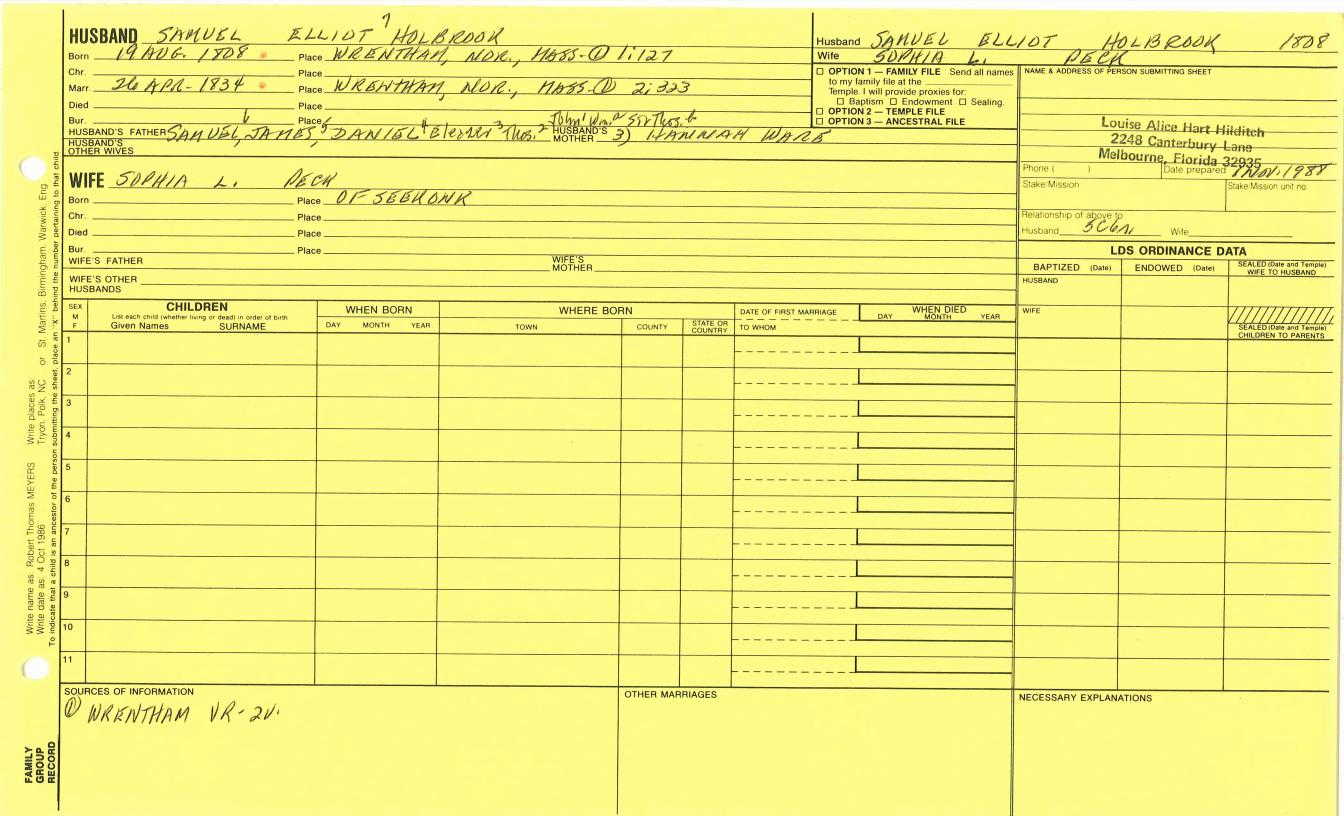 HUSBAND SAMUEL ELLIOT 7 HOLBROOK
Born 19 AUG. 1808 Place WRENTHAM, NOR., MASS-① 1:127
Chr. Place
Marr. 26 APR- 1834 Place WRENTHAM, NOR., MASS-① 2:323
Died Place
Bur. Place
John1 Wm.2 SirThos.6
HUSBAND'S FATHER SAMUEL,6 JAMES,5 DANIEL4 Eleazer3 Thos.2 HUSBAND'S MOTHER 3) HANNAH WARE
HUSBAND'S OTHER WIVES
Husband SAMUEL ELLIOT HOLBROOK 1808
Wife SOPHIA L. PECK
☐ OPTION 1 — FAMILY FILE Send all names
to my family file at the
Temple. I will provide proxies for:
☐ Baptism ☐ Endowment ☐ Sealing.
☐ OPTION 2 — TEMPLE FILE
☐ OPTION 3 — ANCESTRAL FILE
NAME & ADDRESS OF PERSON SUBMITTING SHEET
Louise Alice Hart Hilditch
2248 Canterbury Lane
Melbourne, Florida 32935
Phone ( ) Date prepared 7 Nov. 1988
Stake/Mission Stake/Mission unit no.
Relationship of above to
Husband 5C6R Wife
WIFE SOPHIA L. PECK
Born Place OF SEEKONK
Chr. Place
Died Place
Bur. Place
WIFE'S FATHER WIFE'S MOTHER
WIFE'S OTHER HUSBANDS
LDS ORDINANCE DATA
BAPTIZED (Date) ENDOWED (Date) SEALED (Date and Temple) WIFE TO HUSBAND
HUSBAND
WIFE
SEALED (Date and Temple) CHILDREN TO PARENTS
SEX M F
CHILDREN
List each child (whether living or dead) in order of birth
Given Names SURNAME
WHEN BORN
DAY MONTH YEAR
WHERE BORN
TOWN COUNTY STATE OR COUNTRY
DATE OF FIRST MARRIAGE
TO WHOM
WHEN DIED
DAY MONTH YEAR
1
2
3
4
5
6
7
8
9
10
11
SOURCES OF INFORMATION
① WRENTHAM VR- 2V.
OTHER MARRIAGES
NECESSARY EXPLANATIONS
Write name as Robert Thomas MEYERS Write places as Tryon, Polk, NC or St. Martins, Birmingham, Warwick, Eng
Write date as 4 Oct 1986
To indicate that a child is an ancestor of the person submitting the sheet, place an "X" behind the number pertaining to that child.
FAMILY
GROUP
RECORD